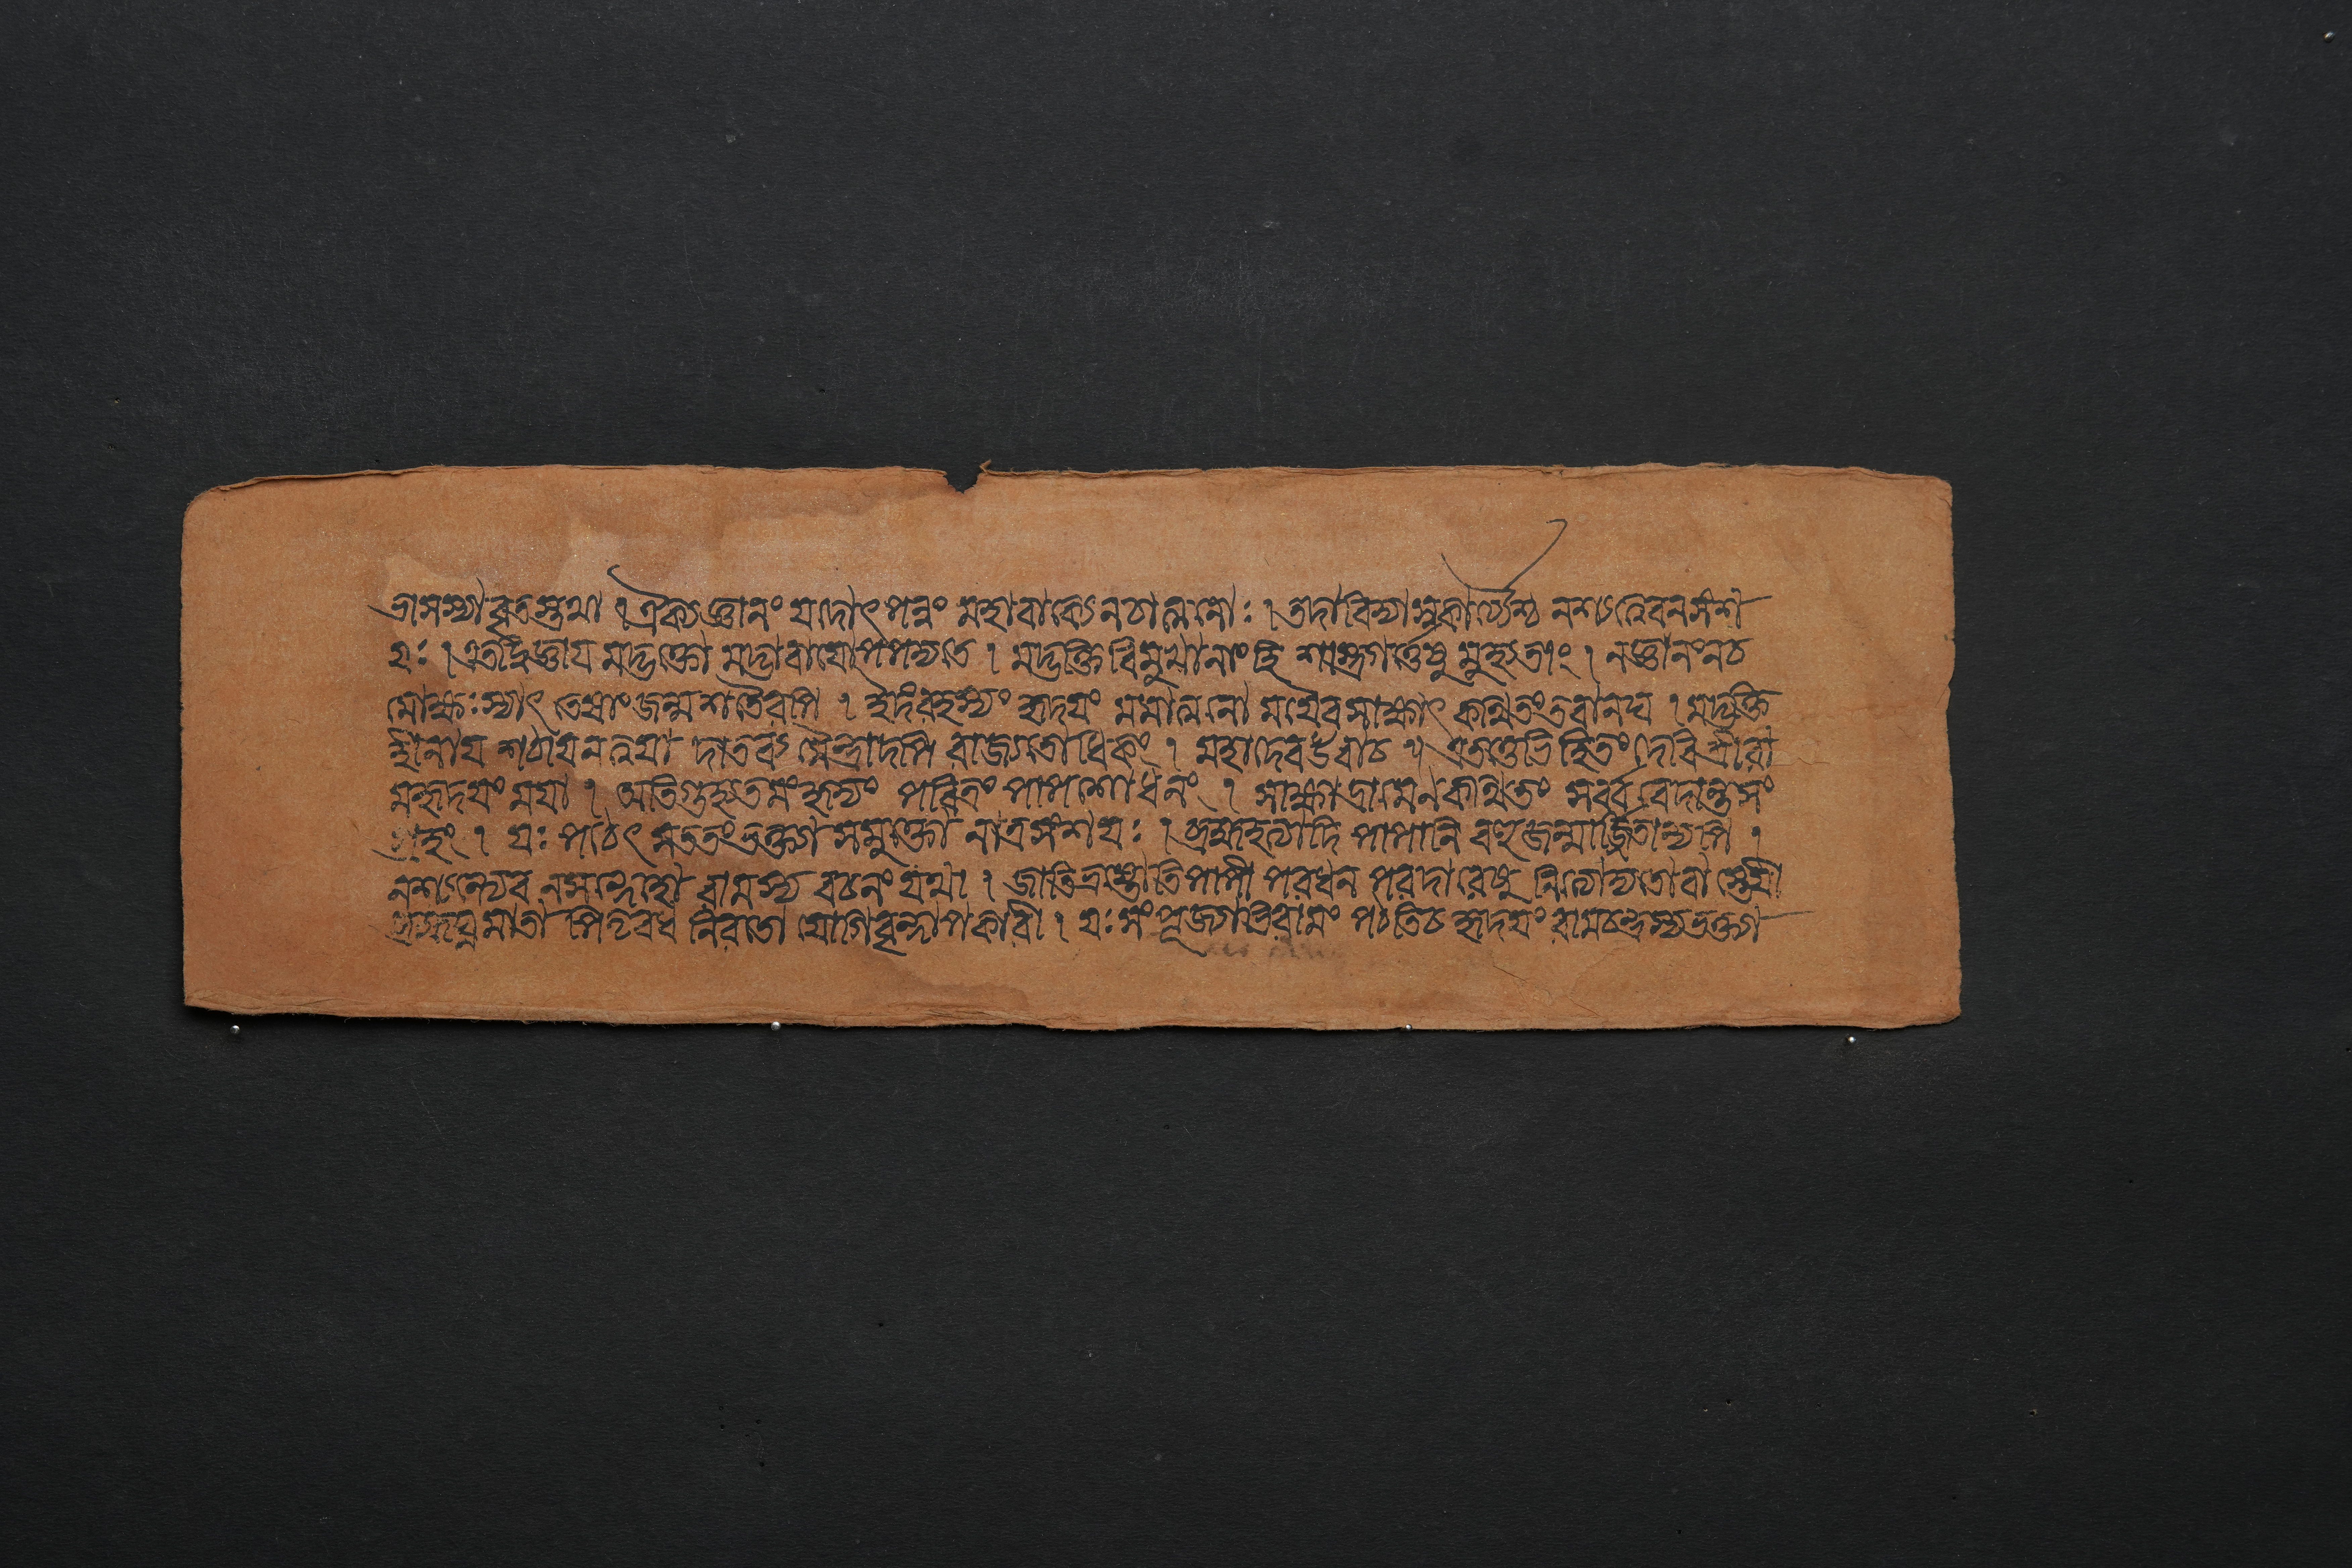 ভাসস্যা বৃতস্তথা । ঐক্যজ্ঞানং যদোৎপন্নং মহাবাক্যেনচাত্মনোঃ । তদাবিদ্যাসুকার্য্যৈশ্চ নশ্যত্যেবনসংশ
য়ঃ । এতদ্বিজ্ঞায় মদ্ভক্তো মদ্ভাবায়োপপদ্যতে । মদ্ভক্তি বিমুখানাং হি শাস্ত্রগর্ত্তেষু মুহ্যতাং । নজ্ঞানংনচ
মোক্ষঃস্যাৎ তেষাং জন্মশতৈরপি । ইদং রহস্যং হৃদয়ং মমাত্মনো ময়ৈবসাক্ষাৎ কথিতং তবানঘ । মদ্ভক্তি
হীনায় শঠায়নত্বয়া দাতব্যমৈন্দ্রাদপি রাজ্যতোধিকং । মহাদেবউবাচ ॥ এতত্তেভিহিতং দেবিশ্রীরা
মহৃদয়ং ময়া । অতিগুহ্যতমংহৃদ্যং পবিত্রং পাপশোধনং । সাক্ষাদ্রামেনকথিতং সর্ব্ববেদান্তসং
গ্রহং । যঃ পঠেৎ সততংভক্ত্যা সমুক্তো নাত্রসংশয়ঃ । ব্রহ্মহত্যাদি পাপানি বহুজন্মার্জ্জিতান্যপি ।
নশ্যন্ত্যেব নসন্দেহো রামস্য বচনং যথা । জাতিভ্রষ্টোতিপাপী পরধন পরদারেষু নিত্যোদ্যতোবা স্তেয়ী
ব্রহ্মঘ্নমাতা পিতৃবধ নিরতো যোগিবৃন্দাপকারী । যঃ সংপূজ্যাভিরামং পঠতিচ হৃদয়ং রামচন্দ্রস্যভক্ত্যা